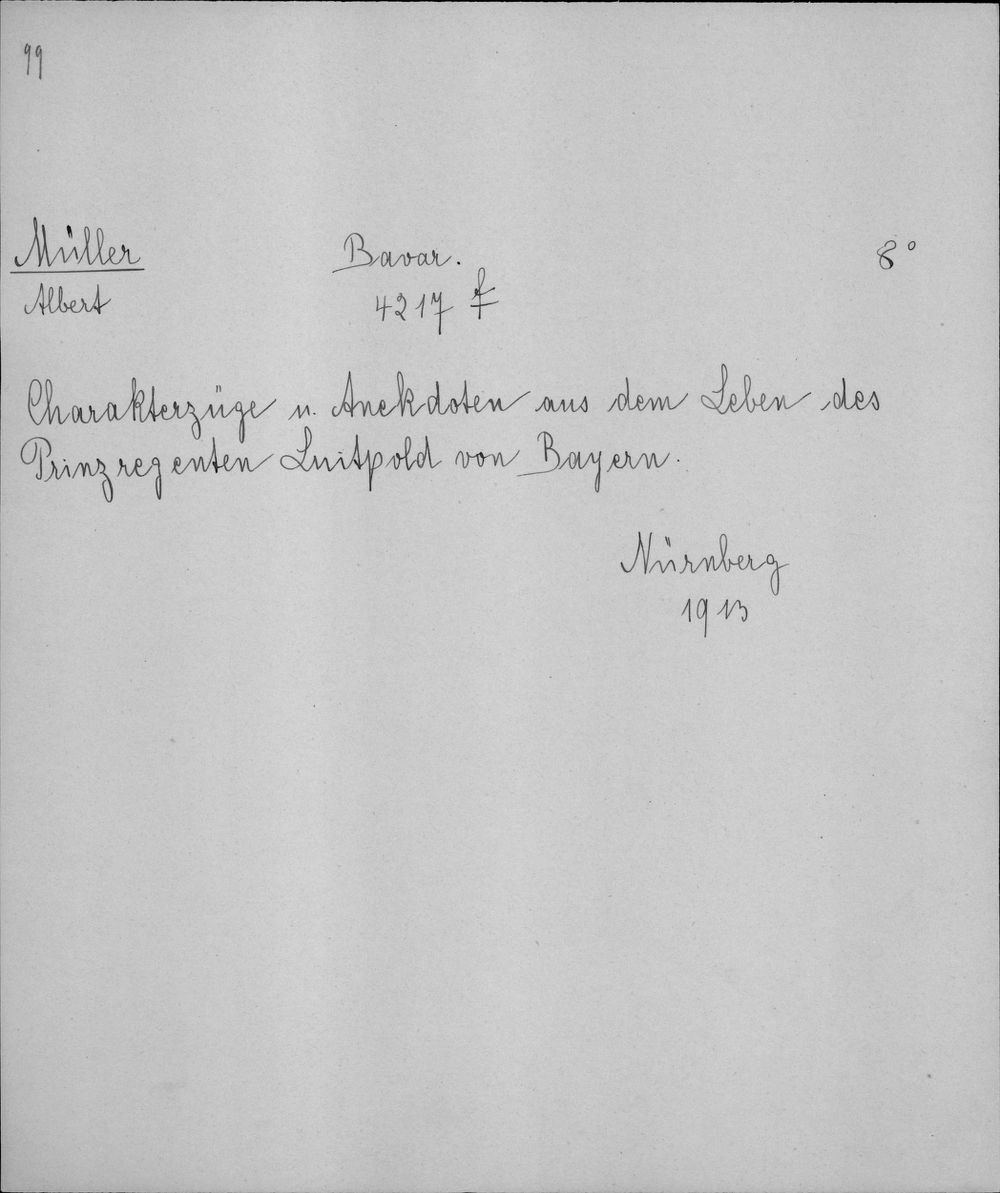 99
Müller Bavar. 8°
Albert 4217 f
Charakterzüge u. Anekdoten aus dem Leben des
Prinzregenten Luitpold von Bayern.
Nürnberg
1913